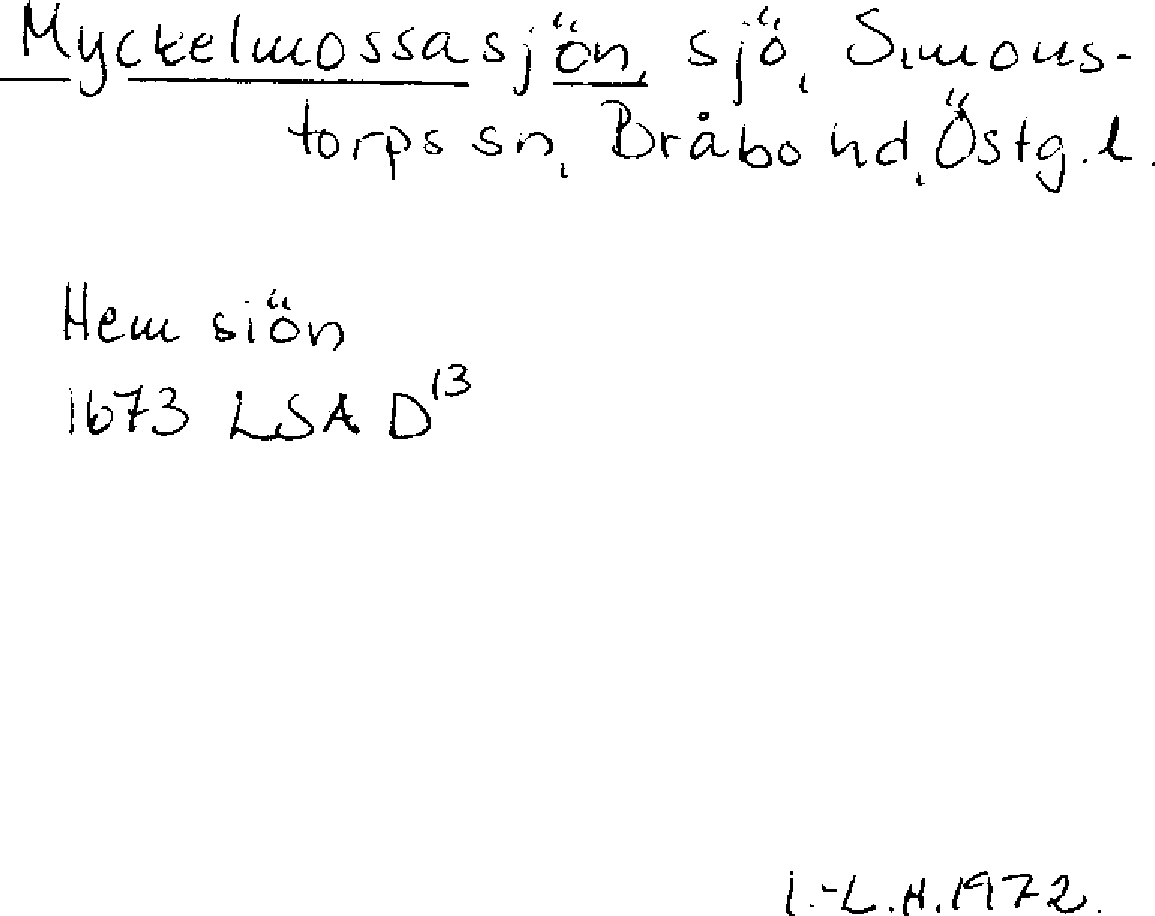 Myckelmossasjön, sjö, Simons-
torps sn, Bråbo hd, Östg. l.
Hem siön
1673 LSA D¹³
I.-L.H. 1972.